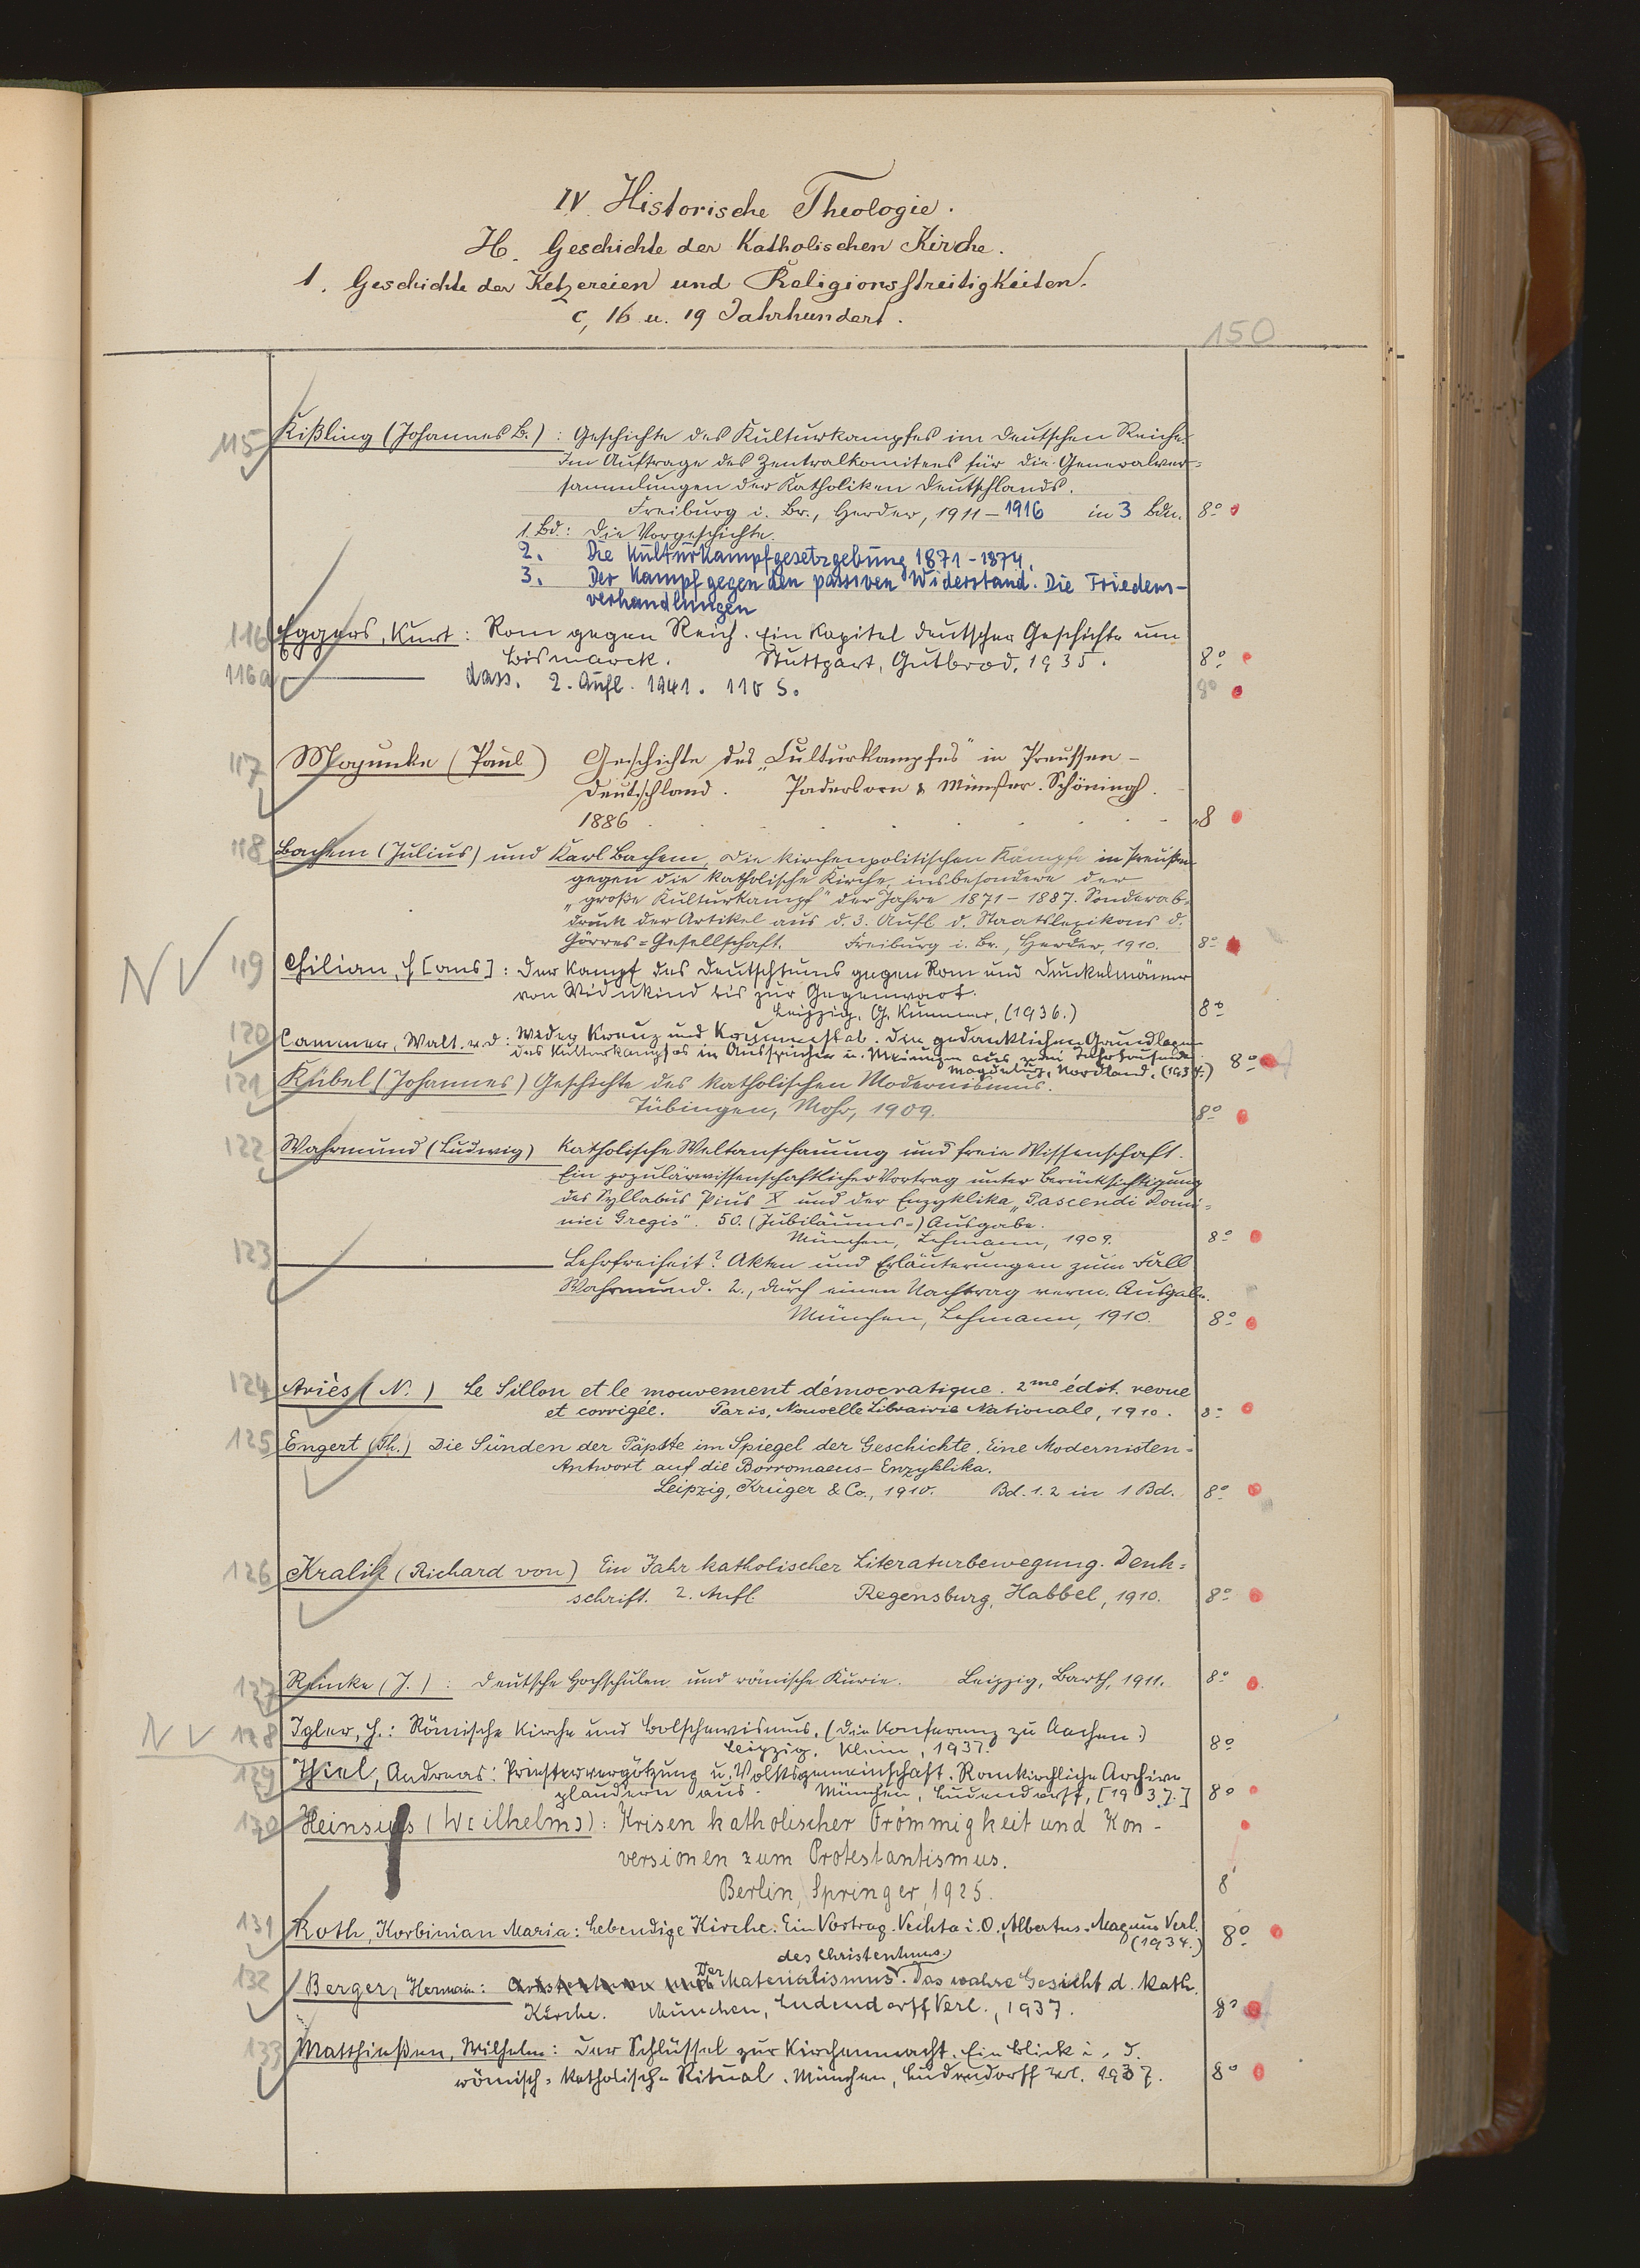 IV. Historische Theologie.
H. Geschichte der Katholischen Kirche.
1. Geschichte der Ketzereien und Religionsstreitigkeiten.
c, 16 u. 19 Jahrhundert.
150
115 Kißling (Johannes B.): Geschichte des Kulturkampfes im deutschen Reiche.
Im Auftrage des Zentralkomitees für die Generalver=
sammlungen der Katholiken Deutschlands.
Freiburg i. Br., Herder, 1911-1916 in 3 Bdn. 8°
1. Bd: Die Vorgeschichte.
2. Die Kulturkampfgesetzgebung 1871-1874.
3. Der Kampf gegen den passiven Widerstand. Die Friedens-
verhandlungen
116 Eggers, Kurt: Rom gegen Reich. Ein Kapitel deutscher Geschichte um
Bismarck. Stuttgart, Gutbrod, 1935. 8°
116a dass. 2. Aufl. 1941. 110 S. 8°
117 Majunke (Paul) Geschichte des „Culturkampfes" in Preussen-
Deutschland. Paderborn & Münster. Schöningh.
1886 8
118 Bachem (Julius) und Karl Bachem, Die kirchenpolitischen Kämpfe in Preußen
gegen die katholische Kirche, insbesondere der
„große Kulturkampf" der Jahre 1871-1887. Sonderab-
druck der Artikel aus d. 3. Aufl. d. Staatslexikons d.
Görres=Gesellschaft. Freiburg i. Br., Herder, 1910. 8°
NV 119 Chilian, H[ans]: Der Kampf des Deutschtums gegen Rom und Dunkelmänner
von Widukind bis zur Gegenwart.
Leipzig, G. Kummer, (1936.) 8°
120 Cammer, Walt. v. d: Wider Kreuz und Krummstab. Die gedanklichen Grundlagen
des Kulturkampfes in Aussprüchen u. Meinungen aus zwei Jahrtausenden
Magdeburg, Nordland, (1934.) 8°
121 Kübel (Johannes) Geschichte des katholischen Modernismus.
Tübingen, Mohr, 1909. 8°
122 Wahrmund (Ludwig) Katholische Weltanschauung und freie Wissenschaft.
Ein populärwissenschaftlicher Vortrag unter Berücksichtigung
des Syllabus Pius X und der Enzyklika „Pascendi Domi=
nici Gregis". 50. (Jubiläums-) Ausgabe.
München, Lehmann, 1909. 8°
123 Lehrfreiheit? Akten und Erläuterungen zum Fall
Wahrmund. 2., durch einen Nachtrag verm. Ausgabe.
München, Lehmann, 1910. 8°
124 Ariès (N.) Le Sillon et le mouvement démocratique. 2me édit. revue
et corrigée. Paris, Nouvelle Librairie Nationale, 1910. 8°
125 Engert (Th.) Die Sünden der Päpste im Spiegel der Geschichte. Eine Modernisten-
Antwort auf die Borromaeus-Enzyklika.
Leipzig, Krüger & Co., 1910. Bd. 1.2 in 1 Bd. 8°
126 Kralik (Richard von) Ein Jahr katholischer Literaturbewegung. Denk=
schrift. 2. Aufl. Regensburg, Habbel, 1910. 8°
127 Reinke (J.): Deutsche Hochschulen und römische Kurie. Leipzig, Barth, 1911. 8°
NV 128 Igler, H.: Römische Kirche und Bolschewismus. (Die Konferenz zu Aachen.)
Leipzig, Klein, 1937. 8°
129 Thiel, Andreas: Priestervergötzung u. Volksgemeinschaft. Romkirchliche Archive
plaudern aus. München, Ludendorff, [1937.] 8°
130 Heinsius (W[ilhelm]): Krisen katholischer Frömmigkeit und Kon-
versionen zum Protestantismus.
Berlin, Springer, 1925. 8°
131 Roth, Korbinian Maria: Lebendige Kirche. Ein Vortrag. Vechta i. O., Albertus-Magnus Verl.
(1934.) 8°
des Christentums.
132 Berger, Hermann: Der Materialismus. Das wahre Gesicht d. kath.
Kirche. München, Ludendorff Verl., 1937. 8°
133 Matthießen, Wilhelm: Der Schlüssel zur Kirchenmacht. Ein Blick i. d.
römisch=katholische Ritual. München, Ludendorff Verl. 1937. 8°